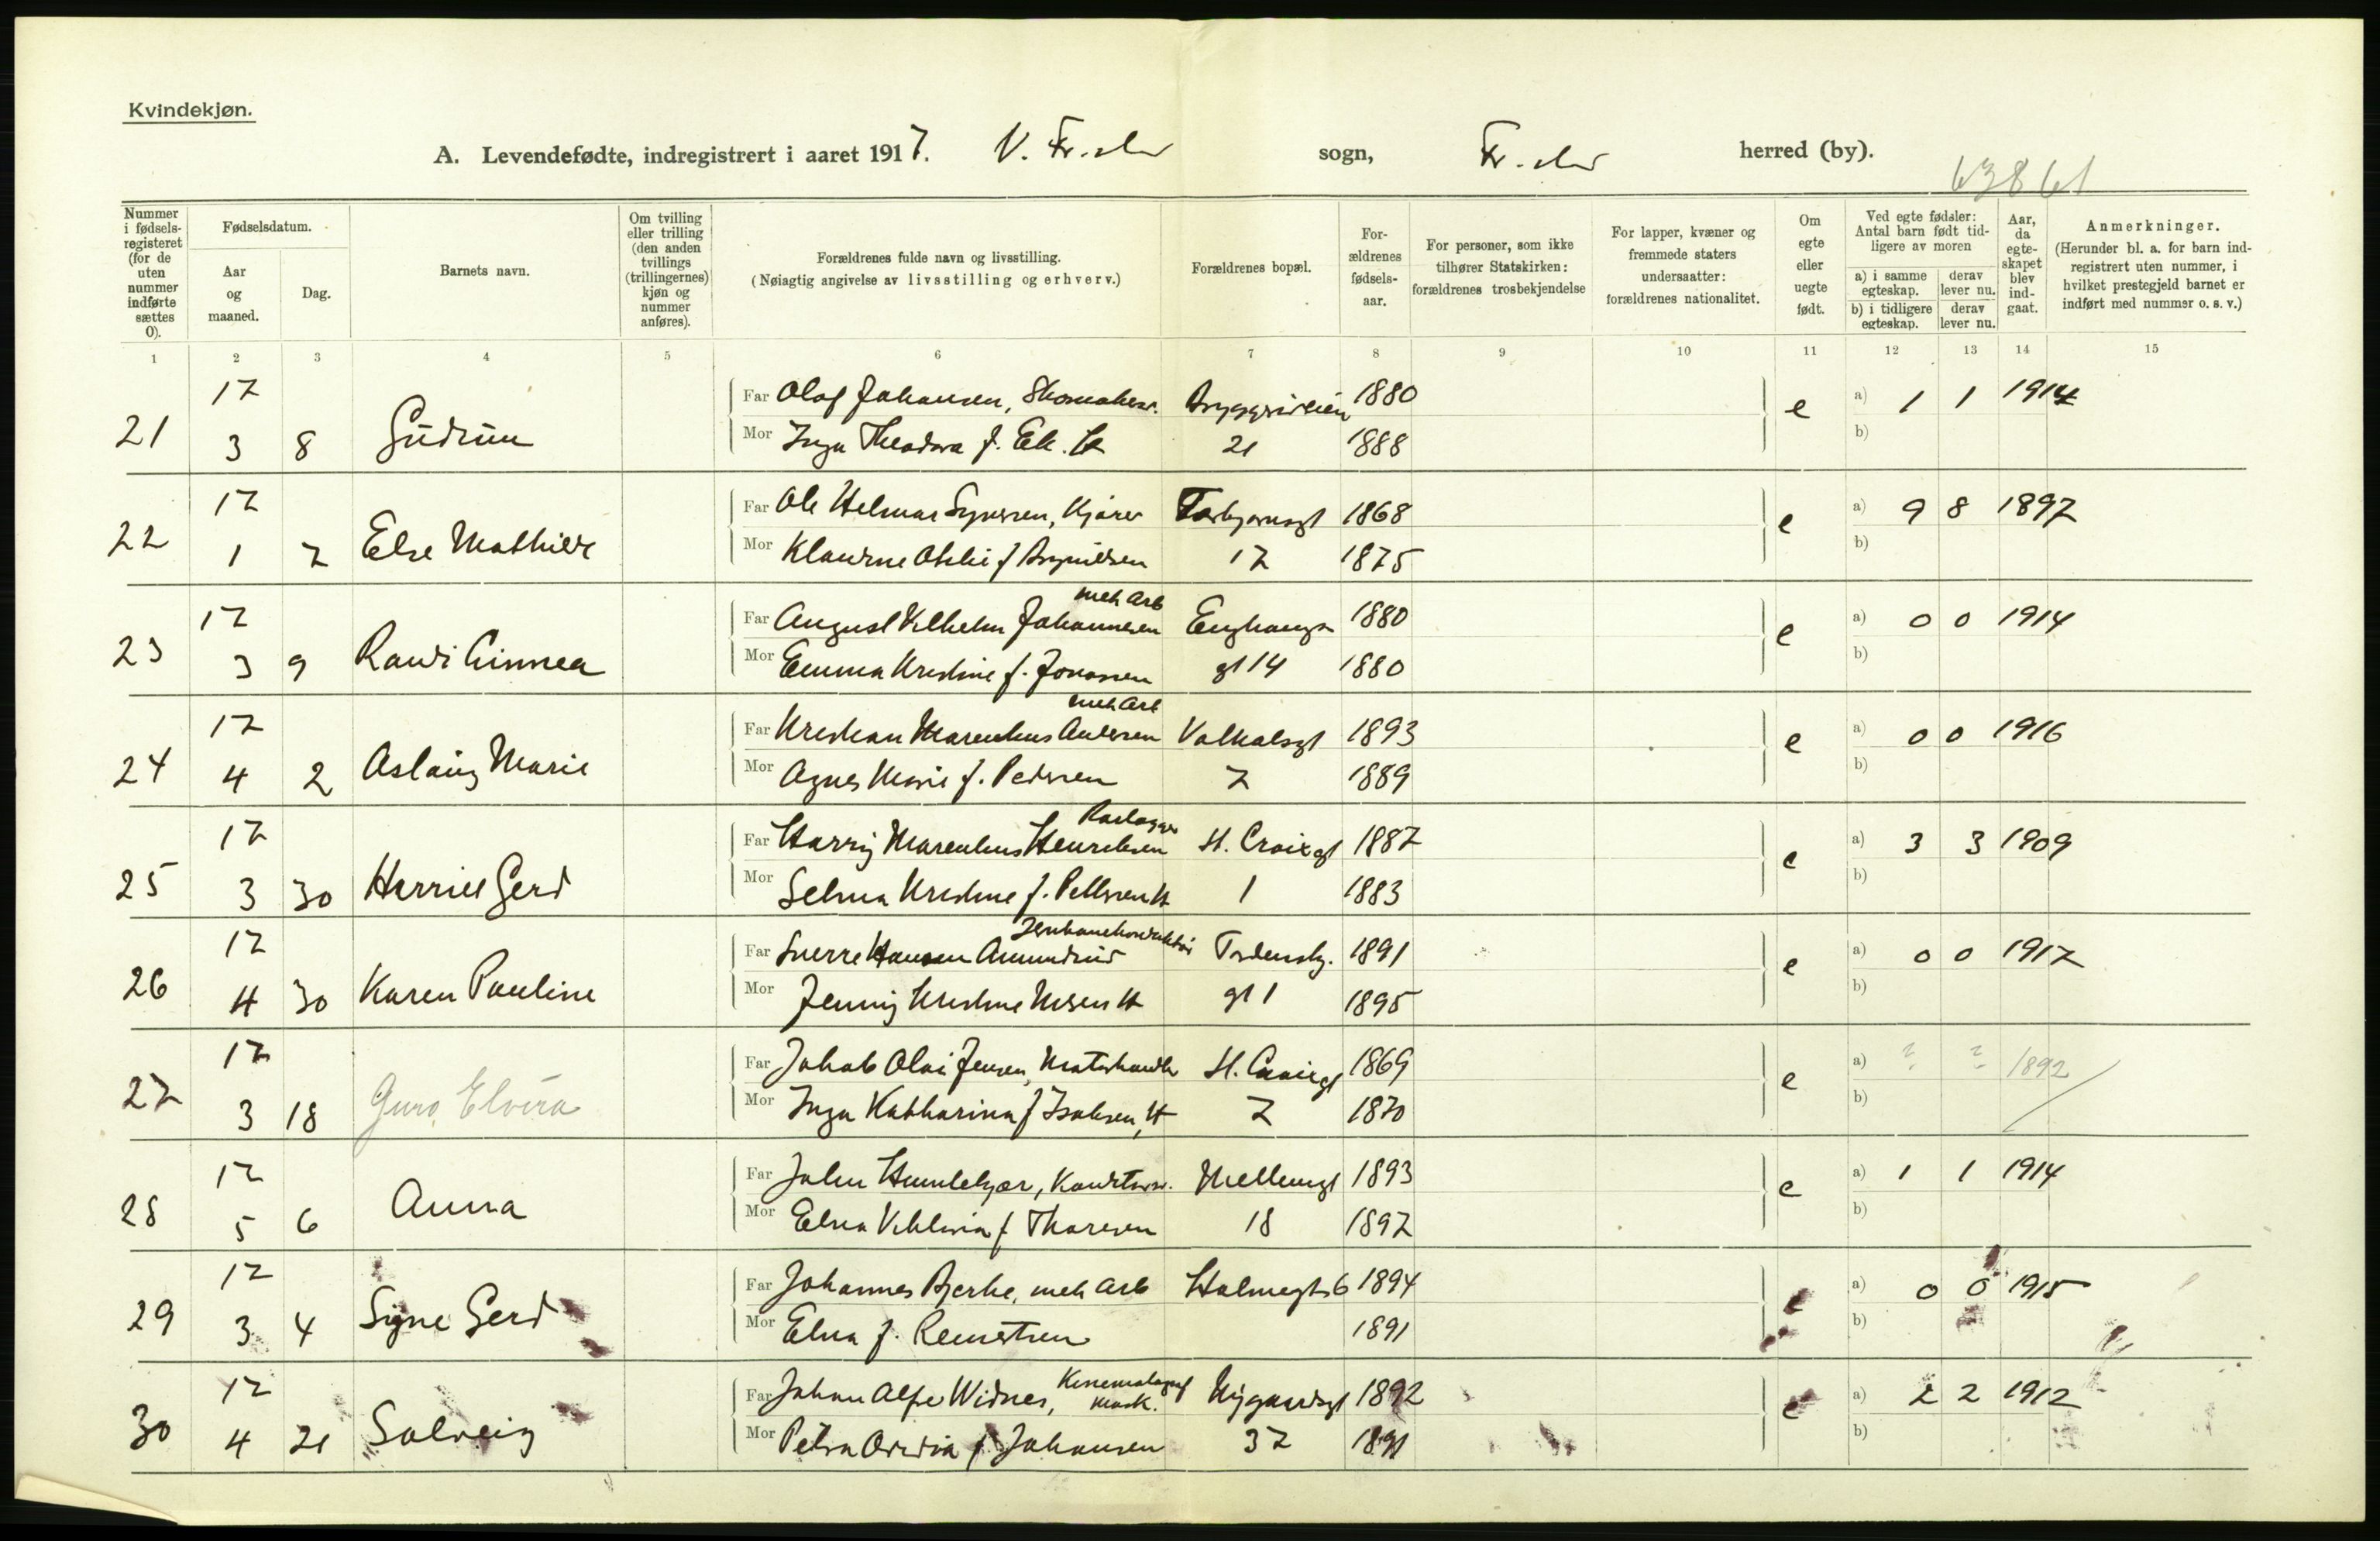 Kvindekjøn.
A. Levendefødte, indregistrert i aaret 1917. V. Fr.stad sogn, Fr.stad herred (by).
63861
Nummer i fødselsregisteret (for de uten nummer indførte sættes 0).
Fødselsdatum.
Aar og maaned.
Dag.
Barnets navn.
Om tvilling eller trilling (den anden tvillings (trillingernes) kjøn og nummer anføres).
Forældrenes fulde navn og livsstilling.
(Nøiagtig angivelse av livsstilling og erhverv.)
Forældrenes bopæl.
Forældrenes fødselsaar.
For personer, som ikke tilhører Statskirken: forældrenes trosbekjendelse
For lapper, kvæner og fremmede staters undersaatter: forældrenes nationalitet.
Om egte eller uegte født.
Ved egte fødsler: Antal barn født tidligere av moren
a) i samme egteskap. derav lever nu.
b) i tidligere egteskap. derav lever nu.
Aar, da egteskapet blev indgaat.
Anmerkninger.
(Herunder bl. a. for barn indregistrert uten nummer, i hvilket prestegjeld barnet er indført med nummer o. s. v.)
1 2 3 4 5 6 7 8 9 10 11 12 13 14 15
17 Far Olaf Johansen, Skomaker. 1880 e a) 1 1 1914
21 3 8 Gudrun Mor Inga Theodora f. Ek. 21 1888 b)
17 Far Ole Helmar Syversen, Kjører Torbjørnsgt 1868 e a) 9 8 1897
22 1 7 Else Mathilde Mor f Brynildsen 17 1875 b)
mek Arb
17 Far August Vilhelm Johannesen Enghaugs 1880 e a) 0 0 1914
23 3 9 Randi Linnea Mor Emma Kristine f. Jonassen gt 14 1880 b)
mek Arb
17 Far Kristian Marenius Andersen Valhalsgt 1893 e a) 0 0 1916
24 4 2 Aslaug Marie Mor Agnes Marie f. Pedersen 7 1889 b)
17 Far Harry Marenius Henriksen St. Croixgt 1887 e a) 3 3 1909
25 3 30 Gerd Mor Selma Kristine f. Pettersen 1 1883 b)
Jernbanekonduktør
17 Far Sverre Hansen Amundrud Tordenskj. 1891 e a) 0 0 1917
26 4 30 Karen Pauline Mor Jenny Kristine gt 1 1895 b)
17 Far Jakob Olai Jensen, St. Croixgt 1869 e a) ? ? 1892
27 3 18 Guro Elvira Mor Inga Katharina f Isaksen, 7 1870 b)
17 Far John Humlekjær, Møllergt 1893 e a) 1 1 1914
28 5 6 Anna Mor Elna f Thoresen 18 1897 b)
17 Far Johannes Bjerke, mek Arb Holmegt 6 1894 e a) 0 0 1915
29 3 4 Signe Gerd Mor Elna f. 1891 b)
Kinematograf
17 Far Johan Alfr Widnes, mask. Nygaardsgt 1892 e a) 2 2 1912
30 4 21 Solveig Mor Petra f Johansen 37 1891 b)